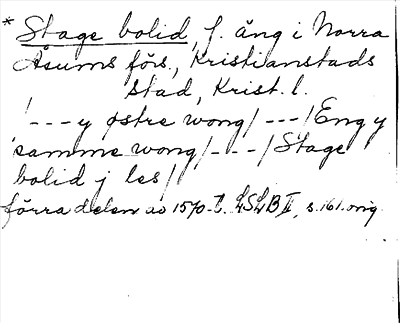 * Stage bolid, f. äng i Norra
Åsums förs., Kristianstads
stad, Krist. l.
/---y østre wong/---/Eng y
samme wong/---/Stage
bolid j les/
förra delen av 1570-t. LSLB II, s. 161. orig.